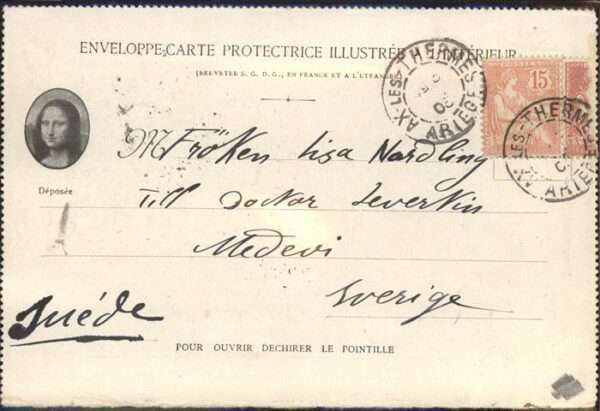 ENVELOPPE-CARTE PROTECTRICE ILLUSTRÉE INTÉRIEUR
(BREVETÉE S. G. D. G., EN FRANCE ET A L'ÉTRANGER
AX-LES-THERMES
ARIEGE
POSTES
15
AX-LES-THERMES
ARIEGE
Déposée
M Fröken Lisa Nordling
Till Doctor Leverkin
Medevi
Sverige
Suéde
POUR OUVRIR DECHIRER LE POINTILLE